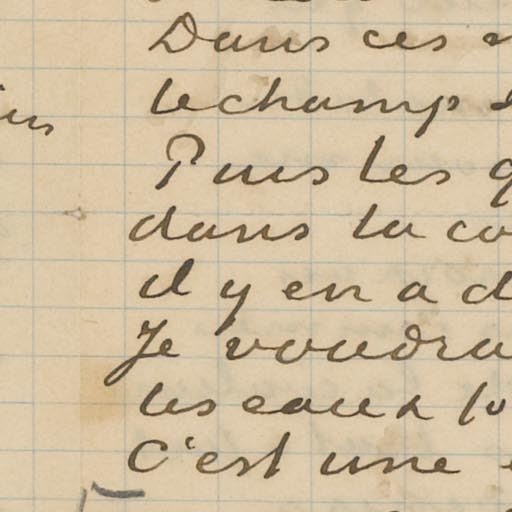 Dans ces
le champ
Puis les
dans la
il y en a
Je
les eaux
C'est une